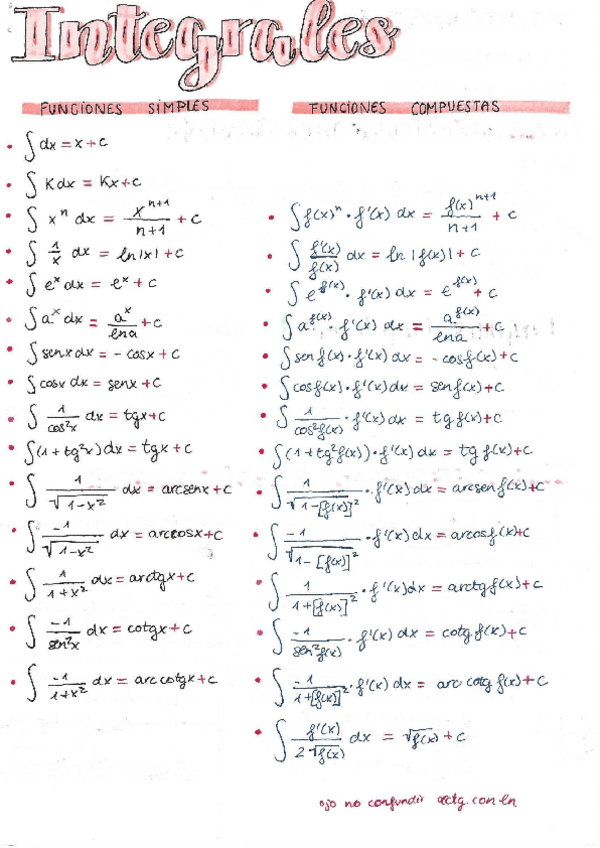 Integrales
FUNCIONES SIMPLES
∫dx = x+c
∫Kdx = Kx+c
∫xⁿ dx = xⁿ⁺¹/n+1 + c
∫1/x dx = ln|x|+c
∫eˣdx = eˣ+c
∫aˣdx = aˣ/lna +c
∫senxdx = -cosx+c
∫cosxdx = senx+c
∫1/cos²x dx = tgx+c
∫(1+tg²x)dx = tgx+c
∫1/√1-x² dx = arcsenx+c
∫-1/√1-x² dx = arccosx+c
∫1/1+x² dx = arctgx+c
∫-1/sen²x dx = cotgx+c
∫-1/1+x² dx = arccotgx+c
FUNCIONES COMPUESTAS
∫f(x)ⁿ·f'(x) dx = f(x)ⁿ⁺¹/n+1 + c
∫f'(x)/f(x) dx = ln|f(x)|+c
∫e^f(x)·f'(x) dx = e^f(x)+c
∫a^f(x)·f'(x) dx = a^f(x)/lna +c
∫senf(x)·f'(x)dx = -cosf(x)+c
∫cosf(x)·f'(x)dx = senf(x)+c
∫1/cos²f(x)·f'(x)dx = tgf(x)+c
∫(1+tg²f(x))·f'(x)dx = tgf(x)+c
∫1/√1-[f(x)]²·f'(x)dx = arcsenf(x)+c
∫-1/√1-[f(x)]²·f'(x)dx = arcosf(x)+c
∫1/1+[f(x)]²·f'(x)dx = arctgf(x)+c
∫-1/sen²f(x)·f'(x)dx = cotgf(x)+c
∫-1/1+[f(x)]²·f'(x)dx = arc cotg f(x)+c
∫f'(x)/2√f(x) dx = √f(x)+c
ojo no confundir con ln